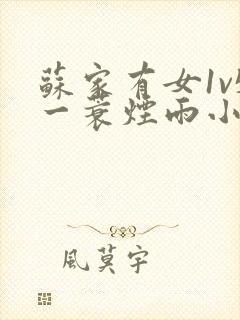 蘇家有女1v1
一蓑煙雨小
風莫宇